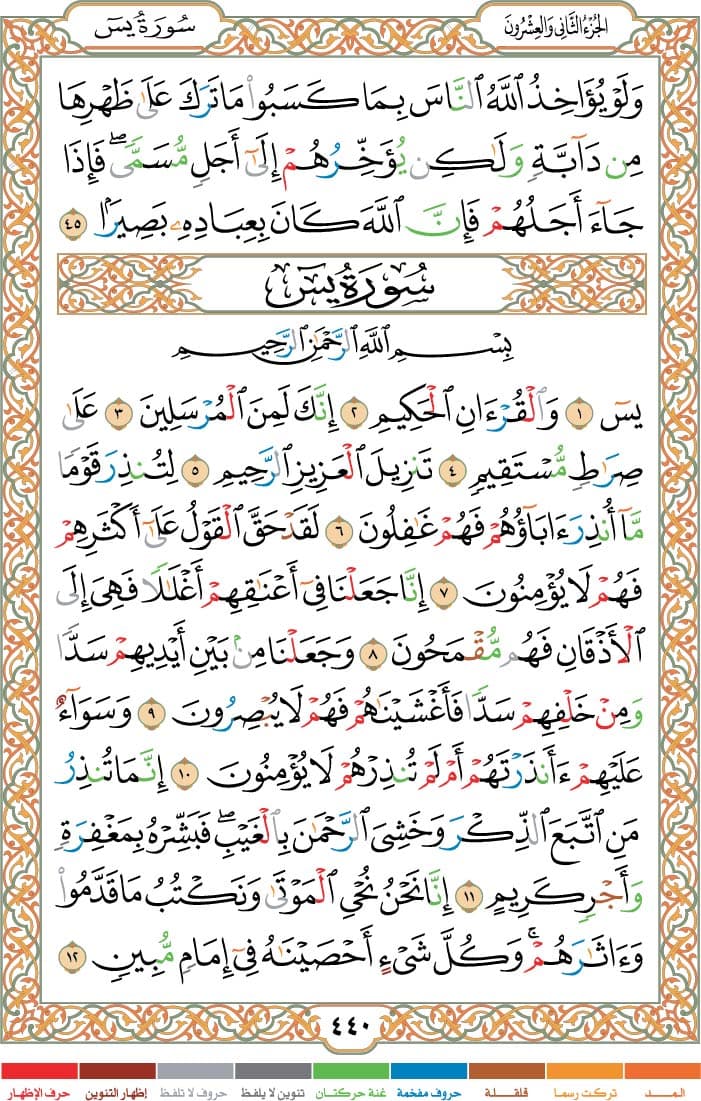 الجُزْءُ الثَّانِي وَالعِشْرُونَ
سُورَةُ يسٓ
وَلَوْ يُؤَاخِذُ ٱللَّهُ ٱلنَّاسَ بِمَا كَسَبُوا۟ مَا تَرَكَ عَلَىٰ ظَهْرِهَا
مِن دَآبَّةٍ وَلَٰكِن يُؤَخِّرُهُمْ إِلَىٰٓ أَجَلٍ مُّسَمًّى ۖ فَإِذَا
جَآءَ أَجَلُهُمْ فَإِنَّ ٱللَّهَ كَانَ بِعِبَادِهِۦ بَصِيرًۢا ٤٥
سُورَةُ يسٓ
بِسْمِ ٱللَّهِ ٱلرَّحْمَٰنِ ٱلرَّحِيمِ
يسٓ ١ وَٱلْقُرْءَانِ ٱلْحَكِيمِ ٢ إِنَّكَ لَمِنَ ٱلْمُرْسَلِينَ ٣ عَلَىٰ
صِرَٰطٍ مُّسْتَقِيمٍ ٤ تَنزِيلَ ٱلْعَزِيزِ ٱلرَّحِيمِ ٥ لِتُنذِرَ قَوْمًا
مَّآ أُنذِرَ ءَابَآؤُهُمْ فَهُمْ غَٰفِلُونَ ٦ لَقَدْ حَقَّ ٱلْقَوْلُ عَلَىٰٓ أَكْثَرِهِمْ
فَهُمْ لَا يُؤْمِنُونَ ٧ إِنَّا جَعَلْنَا فِىٓ أَعْنَٰقِهِمْ أَغْلَٰلًا فَهِىَ إِلَى
ٱلْأَذْقَانِ فَهُم مُّقْمَحُونَ ٨ وَجَعَلْنَا مِنۢ بَيْنِ أَيْدِيهِمْ سَدًّا
وَمِنْ خَلْفِهِمْ سَدًّا فَأَغْشَيْنَٰهُمْ فَهُمْ لَا يُبْصِرُونَ ٩ وَسَوَآءٌ
عَلَيْهِمْ ءَأَنذَرْتَهُمْ أَمْ لَمْ تُنذِرْهُمْ لَا يُؤْمِنُونَ ١٠ إِنَّمَا تُنذِرُ
مَنِ ٱتَّبَعَ ٱلذِّكْرَ وَخَشِىَ ٱلرَّحْمَٰنَ بِٱلْغَيْبِ ۖ فَبَشِّرْهُ بِمَغْفِرَةٍ
وَأَجْرٍ كَرِيمٍ ١١ إِنَّا نَحْنُ نُحْىِ ٱلْمَوْتَىٰ وَنَكْتُبُ مَا قَدَّمُوا۟
وَءَاثَٰرَهُمْ ۚ وَكُلَّ شَىْءٍ أَحْصَيْنَٰهُ فِىٓ إِمَامٍ مُّبِينٍ ١٢
٤٤٠
المـــد
تركت رسما
قلقلة
حروف مفخمة
غنة حركتان
تنوين لا يلفظ
حروف لا تلفظ
إظهار التنوين
حرف الإظهار